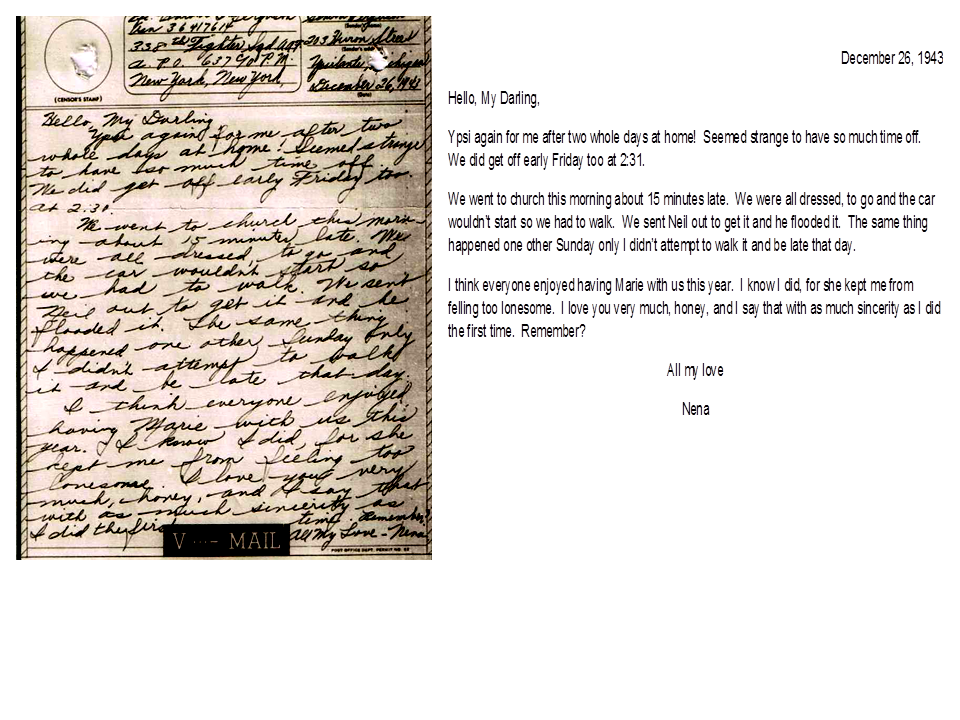 Asn 36417614
338th Fighter Sqd AAF
A.P.O. 637 % P.M.
New York, New York,
(CENSOR'S STAMP)
(Sender's name)
203 Huron Street
(Sender's address)
Ypsilanti, Michigan
December 26, 1943
(Date)
Hello, My Darling,
Ypsi again for me after two
whole days at home! Seemed strange
to have so much time off.
We did get off early Friday too.
at 2:30.
We went to church this morn-
ing about 15 minutes late. We
were all dressed, to go and
the car wouldn't start so
we had to walk. We sent
Neil out to get it and he
flooded it. The same thing
happened one other Sunday only
I didn't attempt to walk
it and be late that day.
I think everyone enjoyed
having Marie with us this
year. I know I did, for she
kept me from feeling too
lonesome. I love you very
much, honey, and I say that
with as much sincerity as
I did the first time. Remember?
All My Love - Nena
V ···- MAIL
POST OFFICE DEPT. PERMIT NO.
December 26, 1943
Hello, My Darling,
Ypsi again for me after two whole days at home! Seemed strange to have so much time off.
We did get off early Friday too at 2:31.
We went to church this morning about 15 minutes late. We were all dressed, to go and the car
wouldn't start so we had to walk. We sent Neil out to get it and he flooded it. The same thing
happened one other Sunday only I didn't attempt to walk it and be late that day.
I think everyone enjoyed having Marie with us this year. I know I did, for she kept me from
felling too lonesome. I love you very much, honey, and I say that with as much sincerity as I did
the first time. Remember?
All my love
Nena